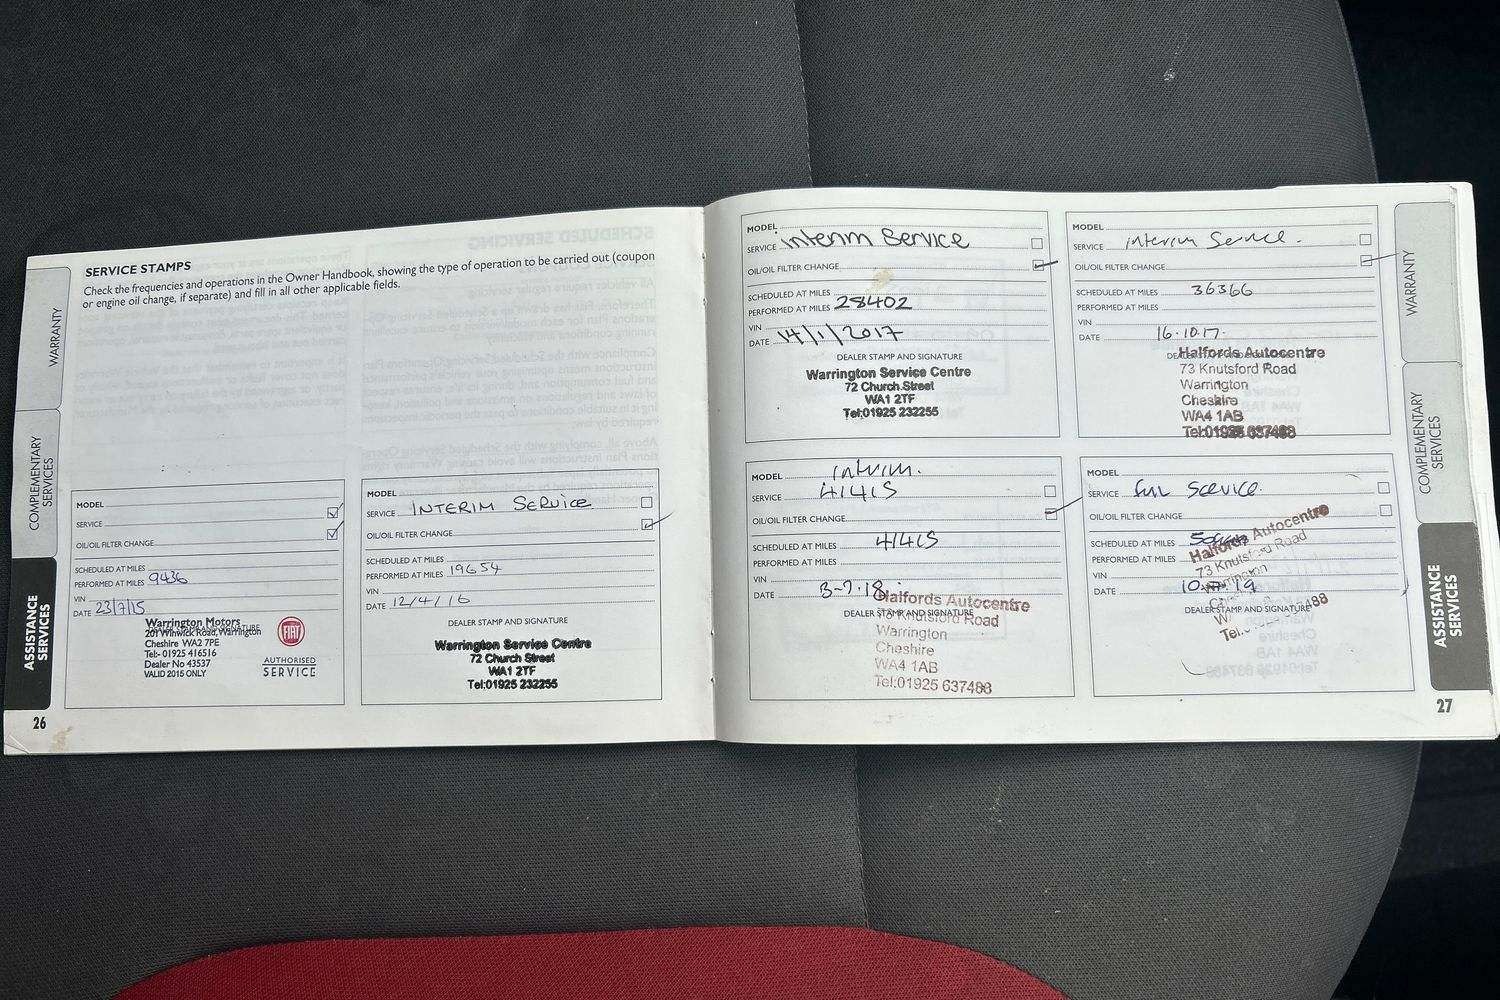 SERVICE STAMPS
Check the frequencies and operations in the Owner Handbook, showing the type of operation to be carried out (coupon
or engine oil change, if separate) and fill in all other applicable fields.
WARRANTY
COMPLEMENTARY
SERVICES
ASSISTANCE
SERVICES
MODEL
SERVICE
OIL/OIL FILTER CHANGE
SCHEDULED AT MILES
PERFORMED AT MILES 9436
VIN
DATE 23/7/15
Warrington Motors
201 Winwick Road, Warrington
Cheshire WA2 7PE
Tel:- 01925 416516
Dealer No 43537
VALID 2015 ONLY
FIAT
AUTHORISED
SERVICE
MODEL
SERVICE INTERIM SERVICE
OIL/OIL FILTER CHANGE
SCHEDULED AT MILES
PERFORMED AT MILES 19654
VIN
DATE 12/4/16
DEALER STAMP AND SIGNATURE
Warrington Service Centre
72 Church Street
WA1 2TF
Tel:01925 232255
26
MODEL
SERVICE Interim Service
OIL/OIL FILTER CHANGE
SCHEDULED AT MILES
PERFORMED AT MILES 28402
VIN
DATE 14/1/2017
DEALER STAMP AND SIGNATURE
Warrington Service Centre
72 Church Street
WA1 2TF
Tel:01925 232255
MODEL
SERVICE interim Service.
OIL/OIL FILTER CHANGE
SCHEDULED AT MILES 36366
PERFORMED AT MILES
VIN
DATE 16.10.17.
Halfords Autocentre
73 Knutsford Road
Warrington
Cheshire
WA4 1AB
Tel:01925 637488
MODEL interim.
SERVICE 41415
OIL/OIL FILTER CHANGE
SCHEDULED AT MILES 41415
PERFORMED AT MILES
VIN
DATE 3-7-18.
DEALER STAMP AND SIGNATURE
Halfords Autocentre
Knutsford Road
Warrington
Cheshire
WA4 1AB
Tel:01925 637488
MODEL
SERVICE full Service.
OIL/OIL FILTER CHANGE
SCHEDULED AT MILES
PERFORMED AT MILES
VIN
DATE
DEALER STAMP AND SIGNATURE
Halfords Autocentre
73 Knutsford Road
Warrington
WARRANTY
COMPLEMENTARY
SERVICES
ASSISTANCE
SERVICES
27